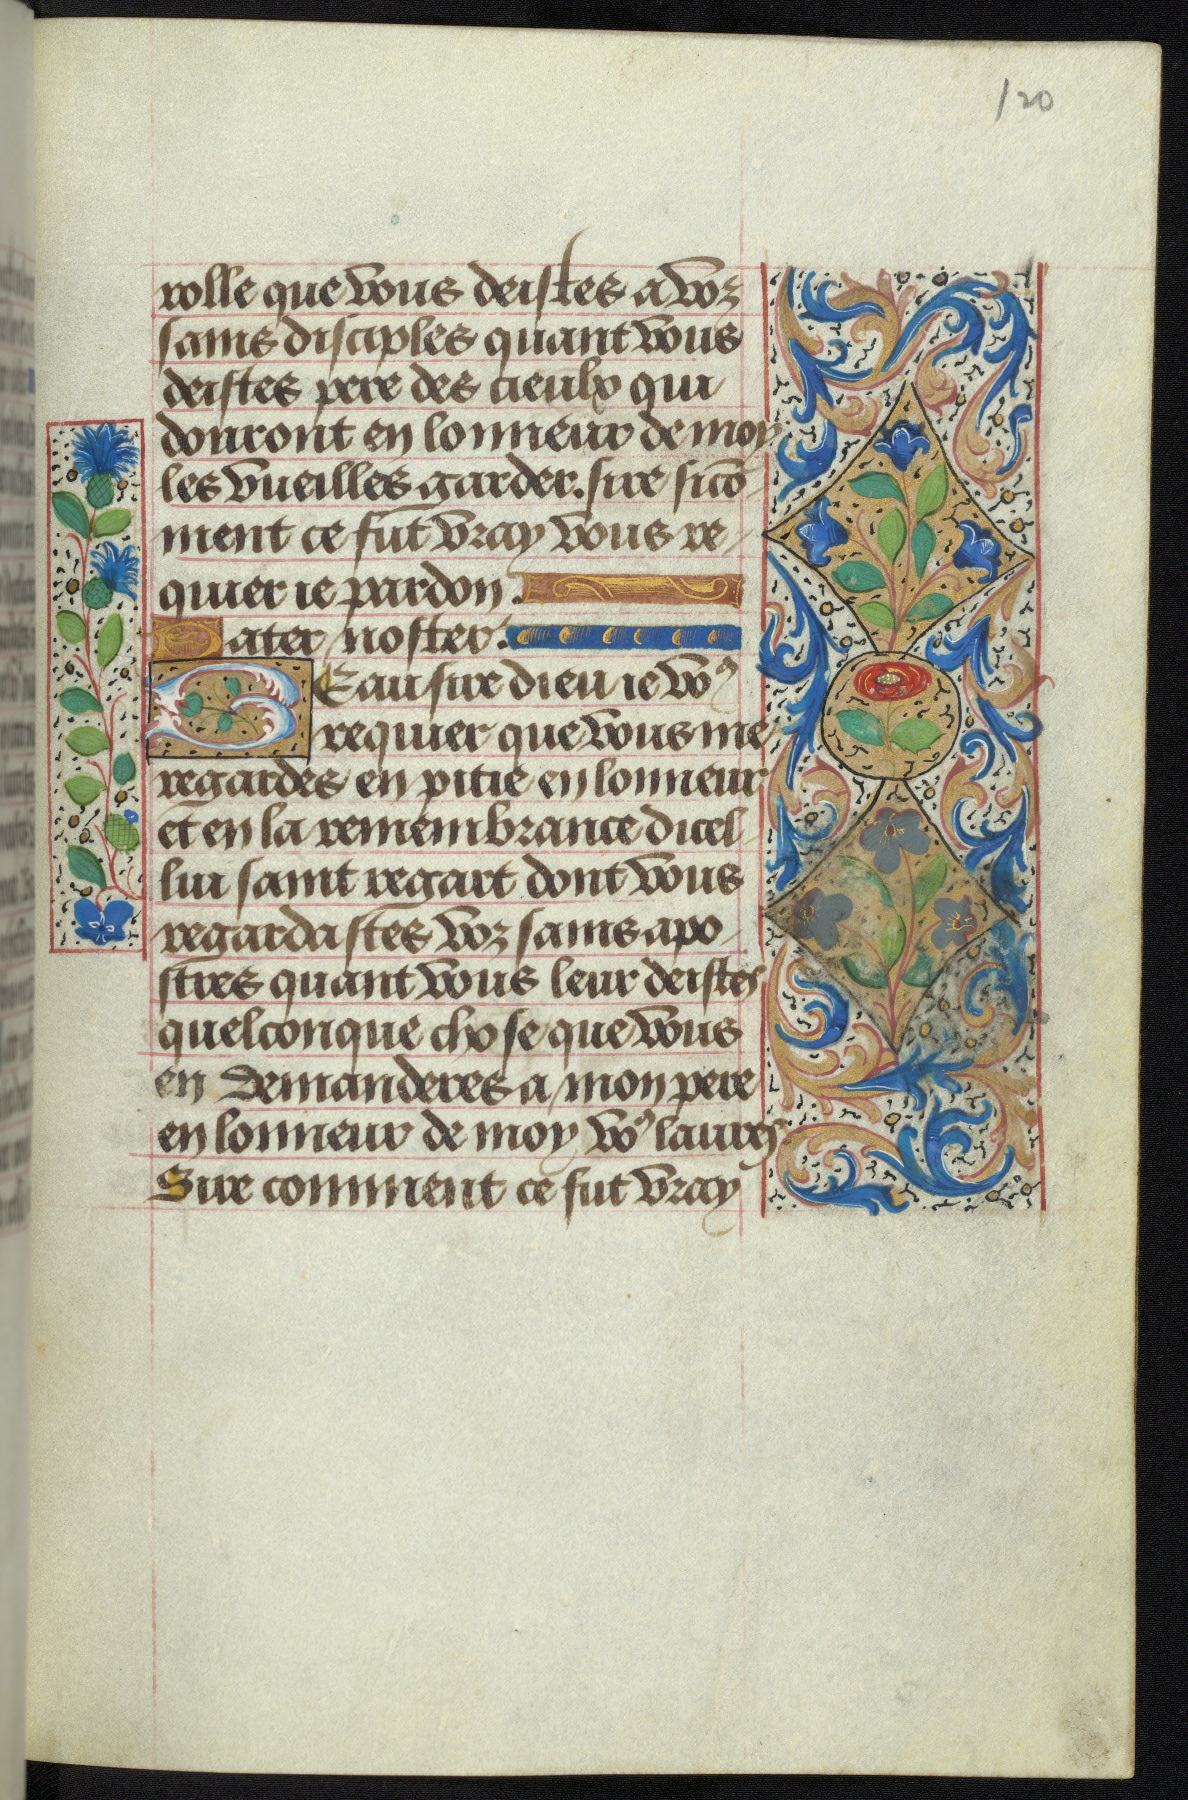 120
rolle que vous deistes a voz
sains disciples quant vous
deistes pere des cieulx qui
donront en lonneur de moy
les vueilles garder. sire sico͂
ment ce fut vray vous re
quier ie pardon.
Pater noster.
Beau sire dieu ie voꝰ
requier que vous me
regardes en pitie en lonneur
et en la remembrance dicel
lui saint regart dont vous
regardastes voz sains apo
stres quant vous leur deistes
quelconque chose que vous
en demanderes a mon pere
en lonneur de moy voꝰ laures
Sire comment ce fut vray